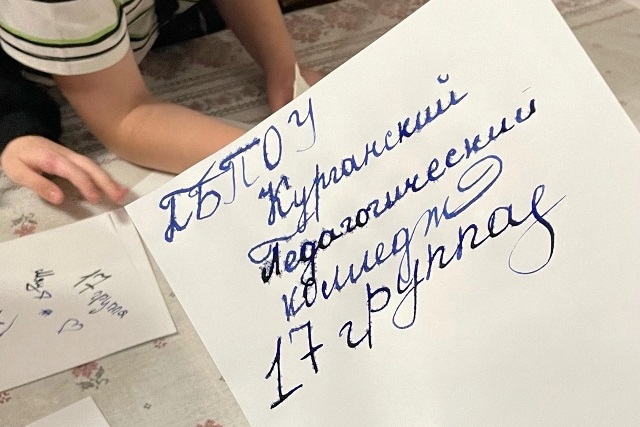 ГБПОУ
Курганский
Педагогический
колледж
17 группа
17 группа